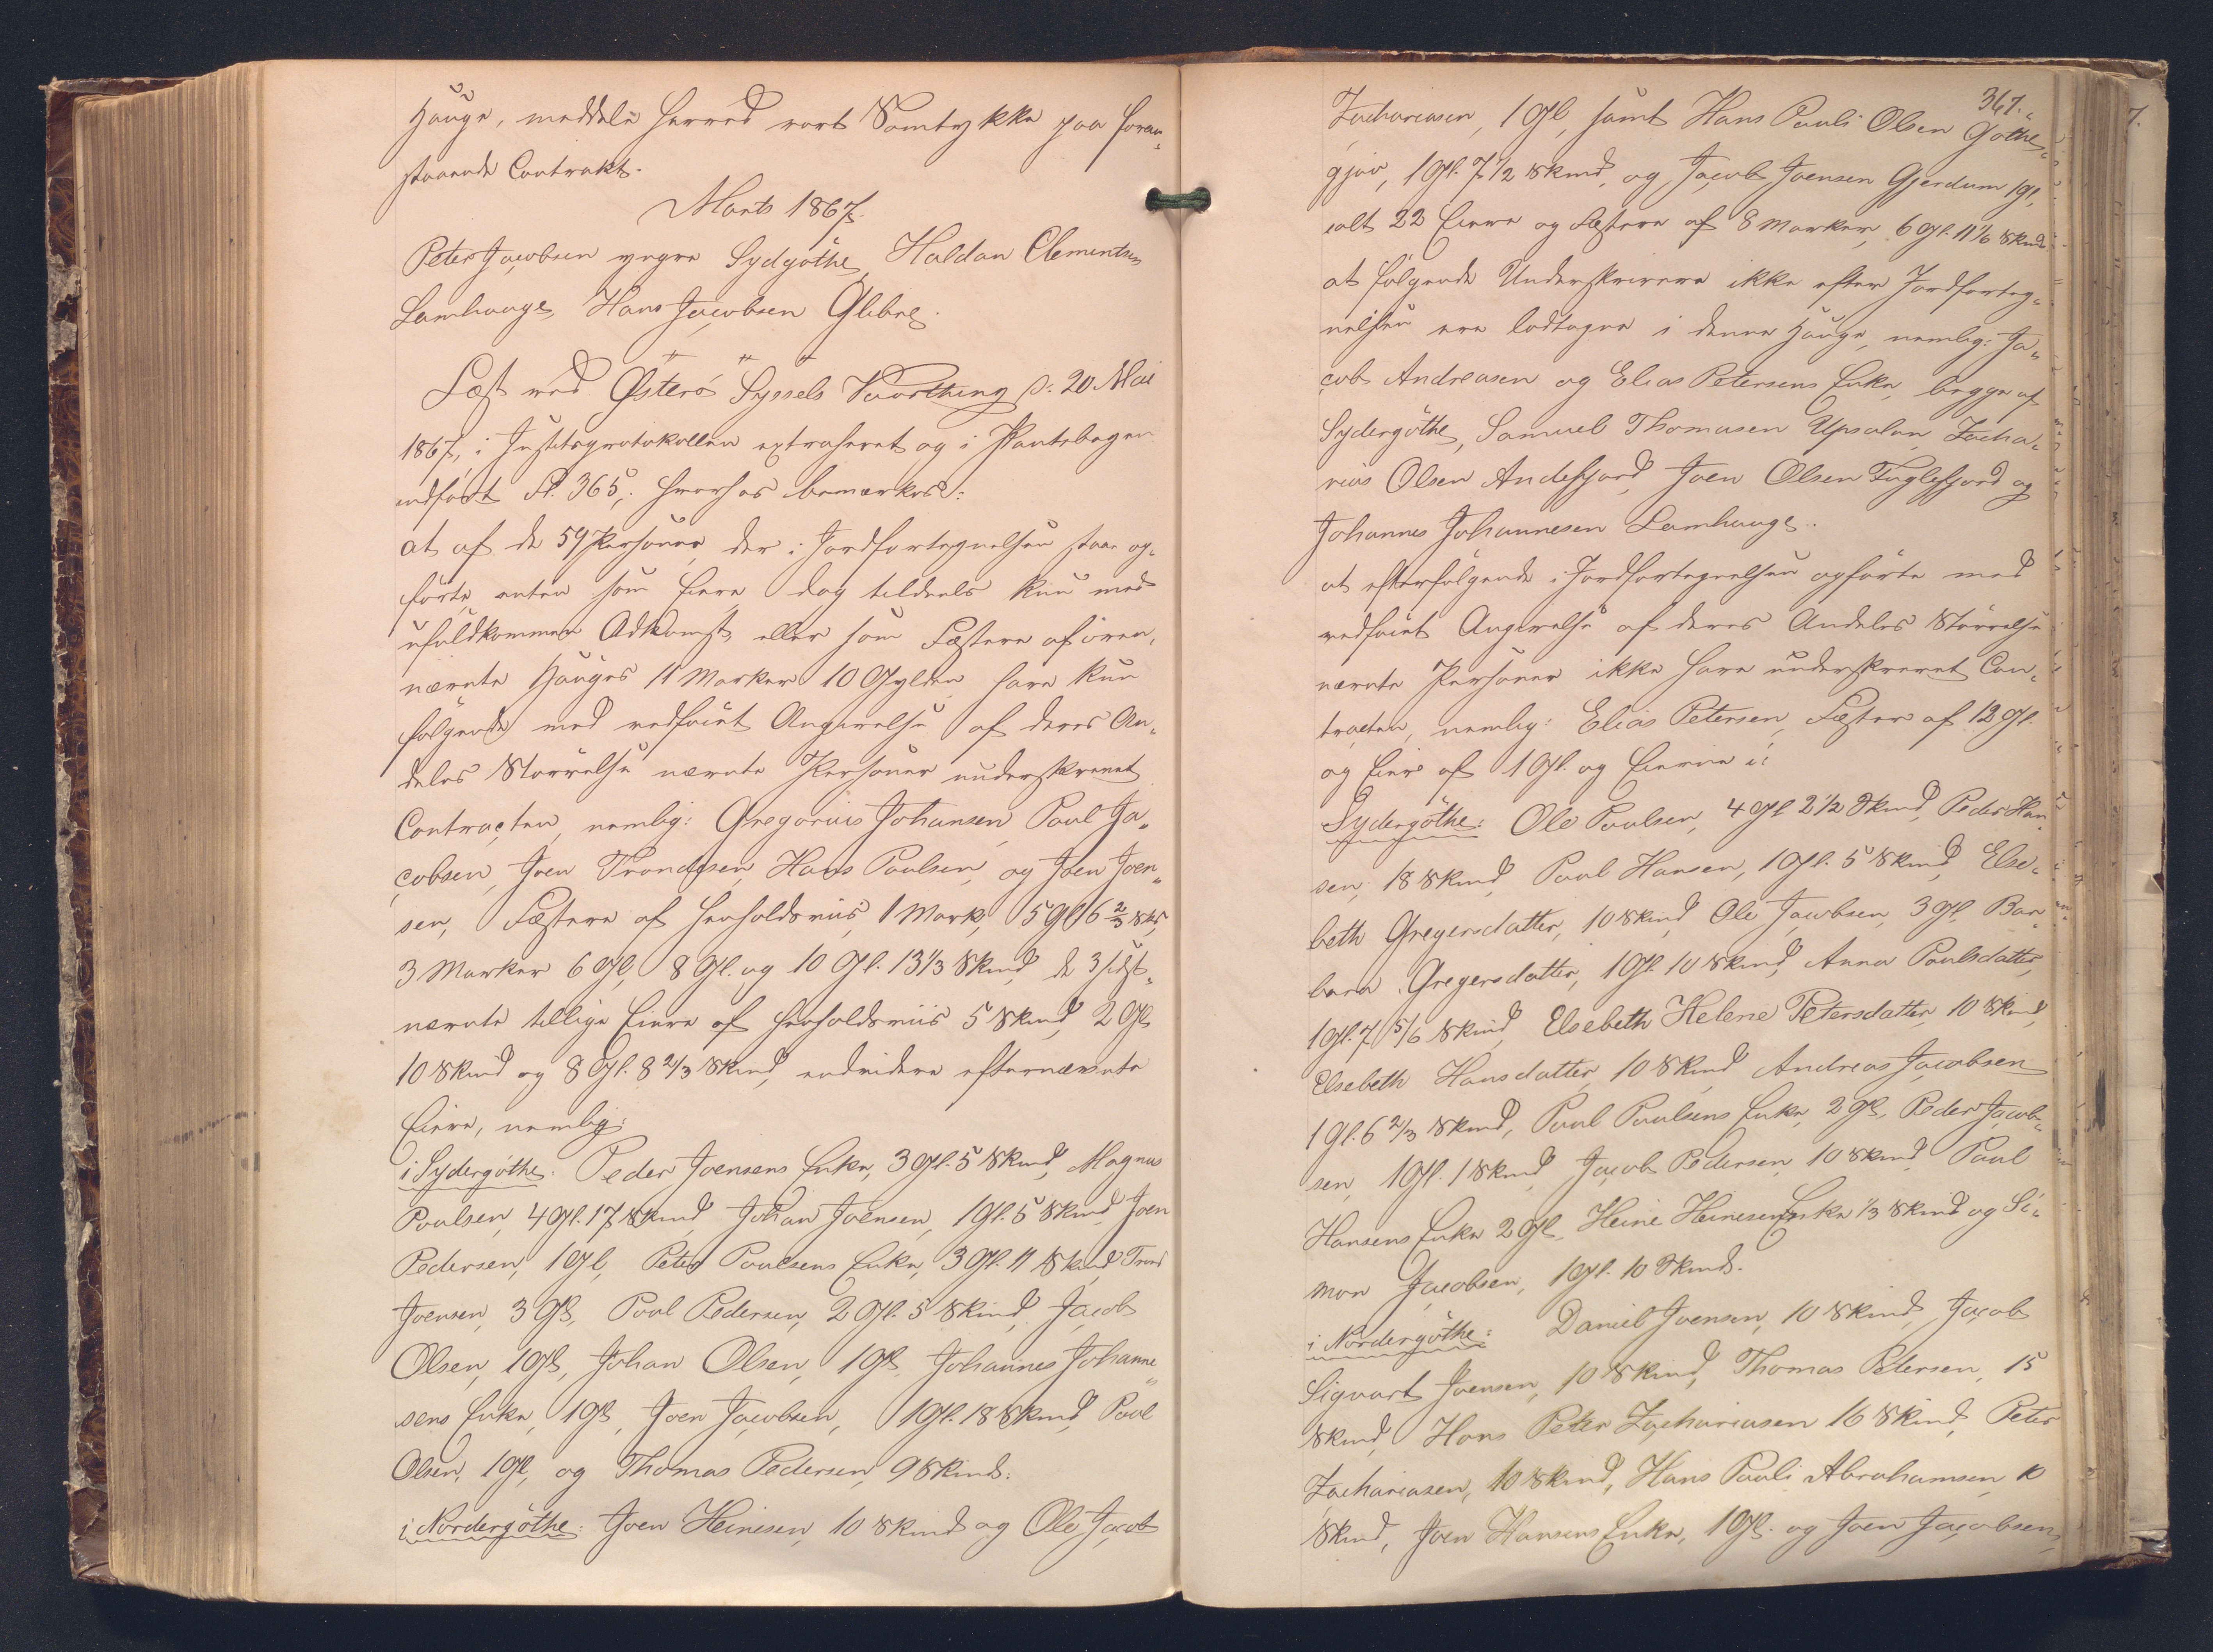 Hauge, meddele herved vort Samtykke paa foran-
staaende Contrakt.
Marts 1867.
Peter Jacobsen yngre Sydgøthe, Haldan Clementsen
Lamhauge, Hans Jacobsen Glibre.
Læst ved Østerø Syssels Vaarthing d: 20 Mai
1867, i Justitsprotokollen extraheret og i Pantebogen
indført Fl. 365; hvorhos bemærkes:
at af de 59 Personer, der i Jordfortegnelsen staae op-
førte, enten som Eiere dog tildeels kun med
ufuldkommen Adkomst, eller som Fæstere af oven-
nævnte Hauges 11 Marker 10 Gylden have kun
følgende med vedføiet Angivelse af deres An-
deles Størrelse nævnte Personer underskrevet
Contracten, nemlig: Gregorius Johansen, Poul Ja-
cobsen, Joen Trondesen, Hans Poulsen, og Joen Joen-
sen, Fæstere af henholdsviis 1 Mark, 5 Gl 6 2/3 Sk,
3 Marker 6 Gl, 8 Gl. og 10 Gl. 13 1/3 Skind, de 3 sidst-
nævnte tillige Eiere af henholdsviis 5 Skind, 2 Gl
10 Skind og 8 Gl. 8 2/3 Skind, endvidere efternævnte
Eiere, nemlig:
i Sydergøthe: Peder Joensens Enke, 3 Gl. 5 Skind, Magnus
Poulsen, 4 Gl. 17 Skind, Johan Joensen, 1 Gl. 5 Skind, Joen
Pedersen, 1 Gl, Peter Poulsens Enke, 3 Gl. 11 Skind, Trond
Joensen, 3 Gl, Poul Pedersen, 2 Gl. 5 Skind, Jacob
Olsen, 1 Gl, Johan Olsen, 1 Gl, Johannes Johanne-
sens Enke, 1 Gl, Joen Jacobsen, 1 Gl. 18 Skind, Poul
Olsen, 1 Gl, og Thomas Pedersen, 9 Skind.
i Nordergøthe: Joen Heinesen, 10 Skind og Ole Jacob
367.
Zachariasen, 1 Gl, samt Hans Pauli Olsen Gøthe-
gjov, 1 Gl. 7 1/2 Skind, og Jacob Joensen Gjerdum 1 Gl,
ialt 22 Eiere og Fæstere af 8 Marker, 6 Gl. 11 1/6 Skind
at følgende Underskrivere ikke efter Jordforteg-
nelsen ere lodtagne i denne Hauge, nemlig: Ja-
cob Andreasen og Elias Petersens Enke, begge af
Sydergøthe, Samuel Thomasen Upsalen, Zacha-
rias Olsen Andefjord, Joen Olsen Fuglefjord og
Johannes Johannesen Lamhauge.
at efterfølgende i Jordfortegnelsen opførte med
vedføiet Angivelse af deres Andeles Størrelse
nævnte Personer ikke have underskrevet Con-
tracten, nemlig: Elias Petersen, Fæster af 12 Gl.
og Eier af 1 Gl. og Eierne i:
Sydergøthe: Ole Poulsen, 4 Gl 2 1/2 Skind, Peder Han-
sen, 18 Skind, Poul Hansen, 1 Gl. 5 Skind, Else-
beth Gregersdatter, 10 Skind, Ole Jacobsen, 3 Gl, Bar-
bara Gregersdatter, 1 Gl. 10 Skind, Anna Poulsdatter,
1 Gl. 7 5/6 Skind, Elsebeth Helene Petersdatter, 10 Skind,
Elsebeth Hansdatter, 10 Skind, Andreas Jacobsen
1 Gl. 6 2/3 Skind, Poul Poulsens Enke, 2 Gl, Peder Jacob-
sen, 1 Gl. 1 Skind, Jacob Pedersen, 10 Skind, Poul
Hansens Enke 2 Gl, Heine Heinesens Enke 1/3 Skind og Si-
mon Jacobsen, 1 Gl. 10 Skind.
i Nordergøthe: Daniel Joensen, 10 Skind, Jacob
Sigvart Joensen, 10 Skind, Thomas Petersen, 15
Skind, Hans Peter Zachariasen 16 Skind, Peter
Zachariasen, 10 Skind, Hans Pauli Abrahamsen, 10
Skind, Joen Hansens Enke, 1 Gl. og Joen Jacobsen,